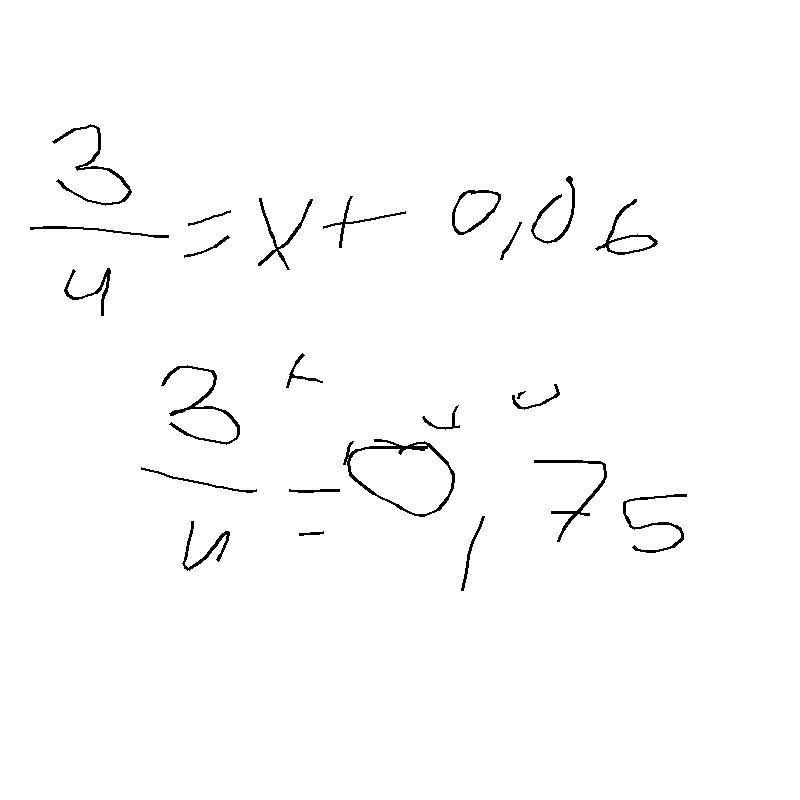 3/4 = x + 0,06
3/4 = 0,75